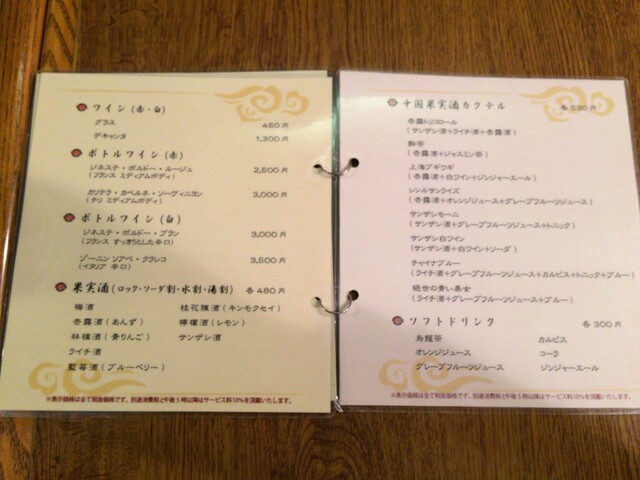 ワイン(赤・白)
グラス 450円
デキャンタ 1,300円
ボトルワイン(赤)
ジネステ・ボルドー・ルージュ 2,500円
(フランス ミディアムボディ)
カリテラ・カベルネ・ソーヴィニヨン 3,000円
(チリ ミディアムボディ)
ボトルワイン(白)
ジネステ・ボルドー・ブラン 3,000円
(フランス すっきりとした辛口)
ゾーニン ソアベ・クラシコ 3,500円
(イタリア 辛口)
果実酒(ロック・ソーダ割・水割・湯割) 各480円
梅酒 桂花陳酒(キンモクセイ)
杏露酒(あんず) 檸檬酒(レモン)
林檎酒(青りんご) サンザシ酒
ライチ酒
藍苺酒(ブルーベリー)
※表示価格は全て税抜価格です。別途消費税と午後5時以降はサービス料10%を頂戴いたします。
中国果実酒カクテル 各530円
杏露トリコロール
(サンザシ酒+ライチ酒+杏露酒)
酔茶
(杏露酒+ジャスミン茶)
上海ブギウギ
(杏露酒+白ワイン+ジンジャーエール)
シンルサンライズ
(杏露酒+オレンジジュース+グレープフルーツジュース)
サンザシモーニ
(サンザシ酒+グレープフルーツジュース+トニック)
サンザシ白ワイン
(サンザシ酒+白ワイン+ソーダ)
チャイナブルー
(ライチ酒+グレープフルーツジュース+カルピス+トニック+ブルー)
絶世の青い美女
(ライチ酒+グレープフルーツジュース+ブルー)
ソフトドリンク 各300円
烏龍茶 カルピス
オレンジジュース コーラ
グレープフルーツジュース ジンジャーエール
※表示価格は全て税抜価格です。別途消費税と午後5時以降はサービス料10%を頂戴いたします。